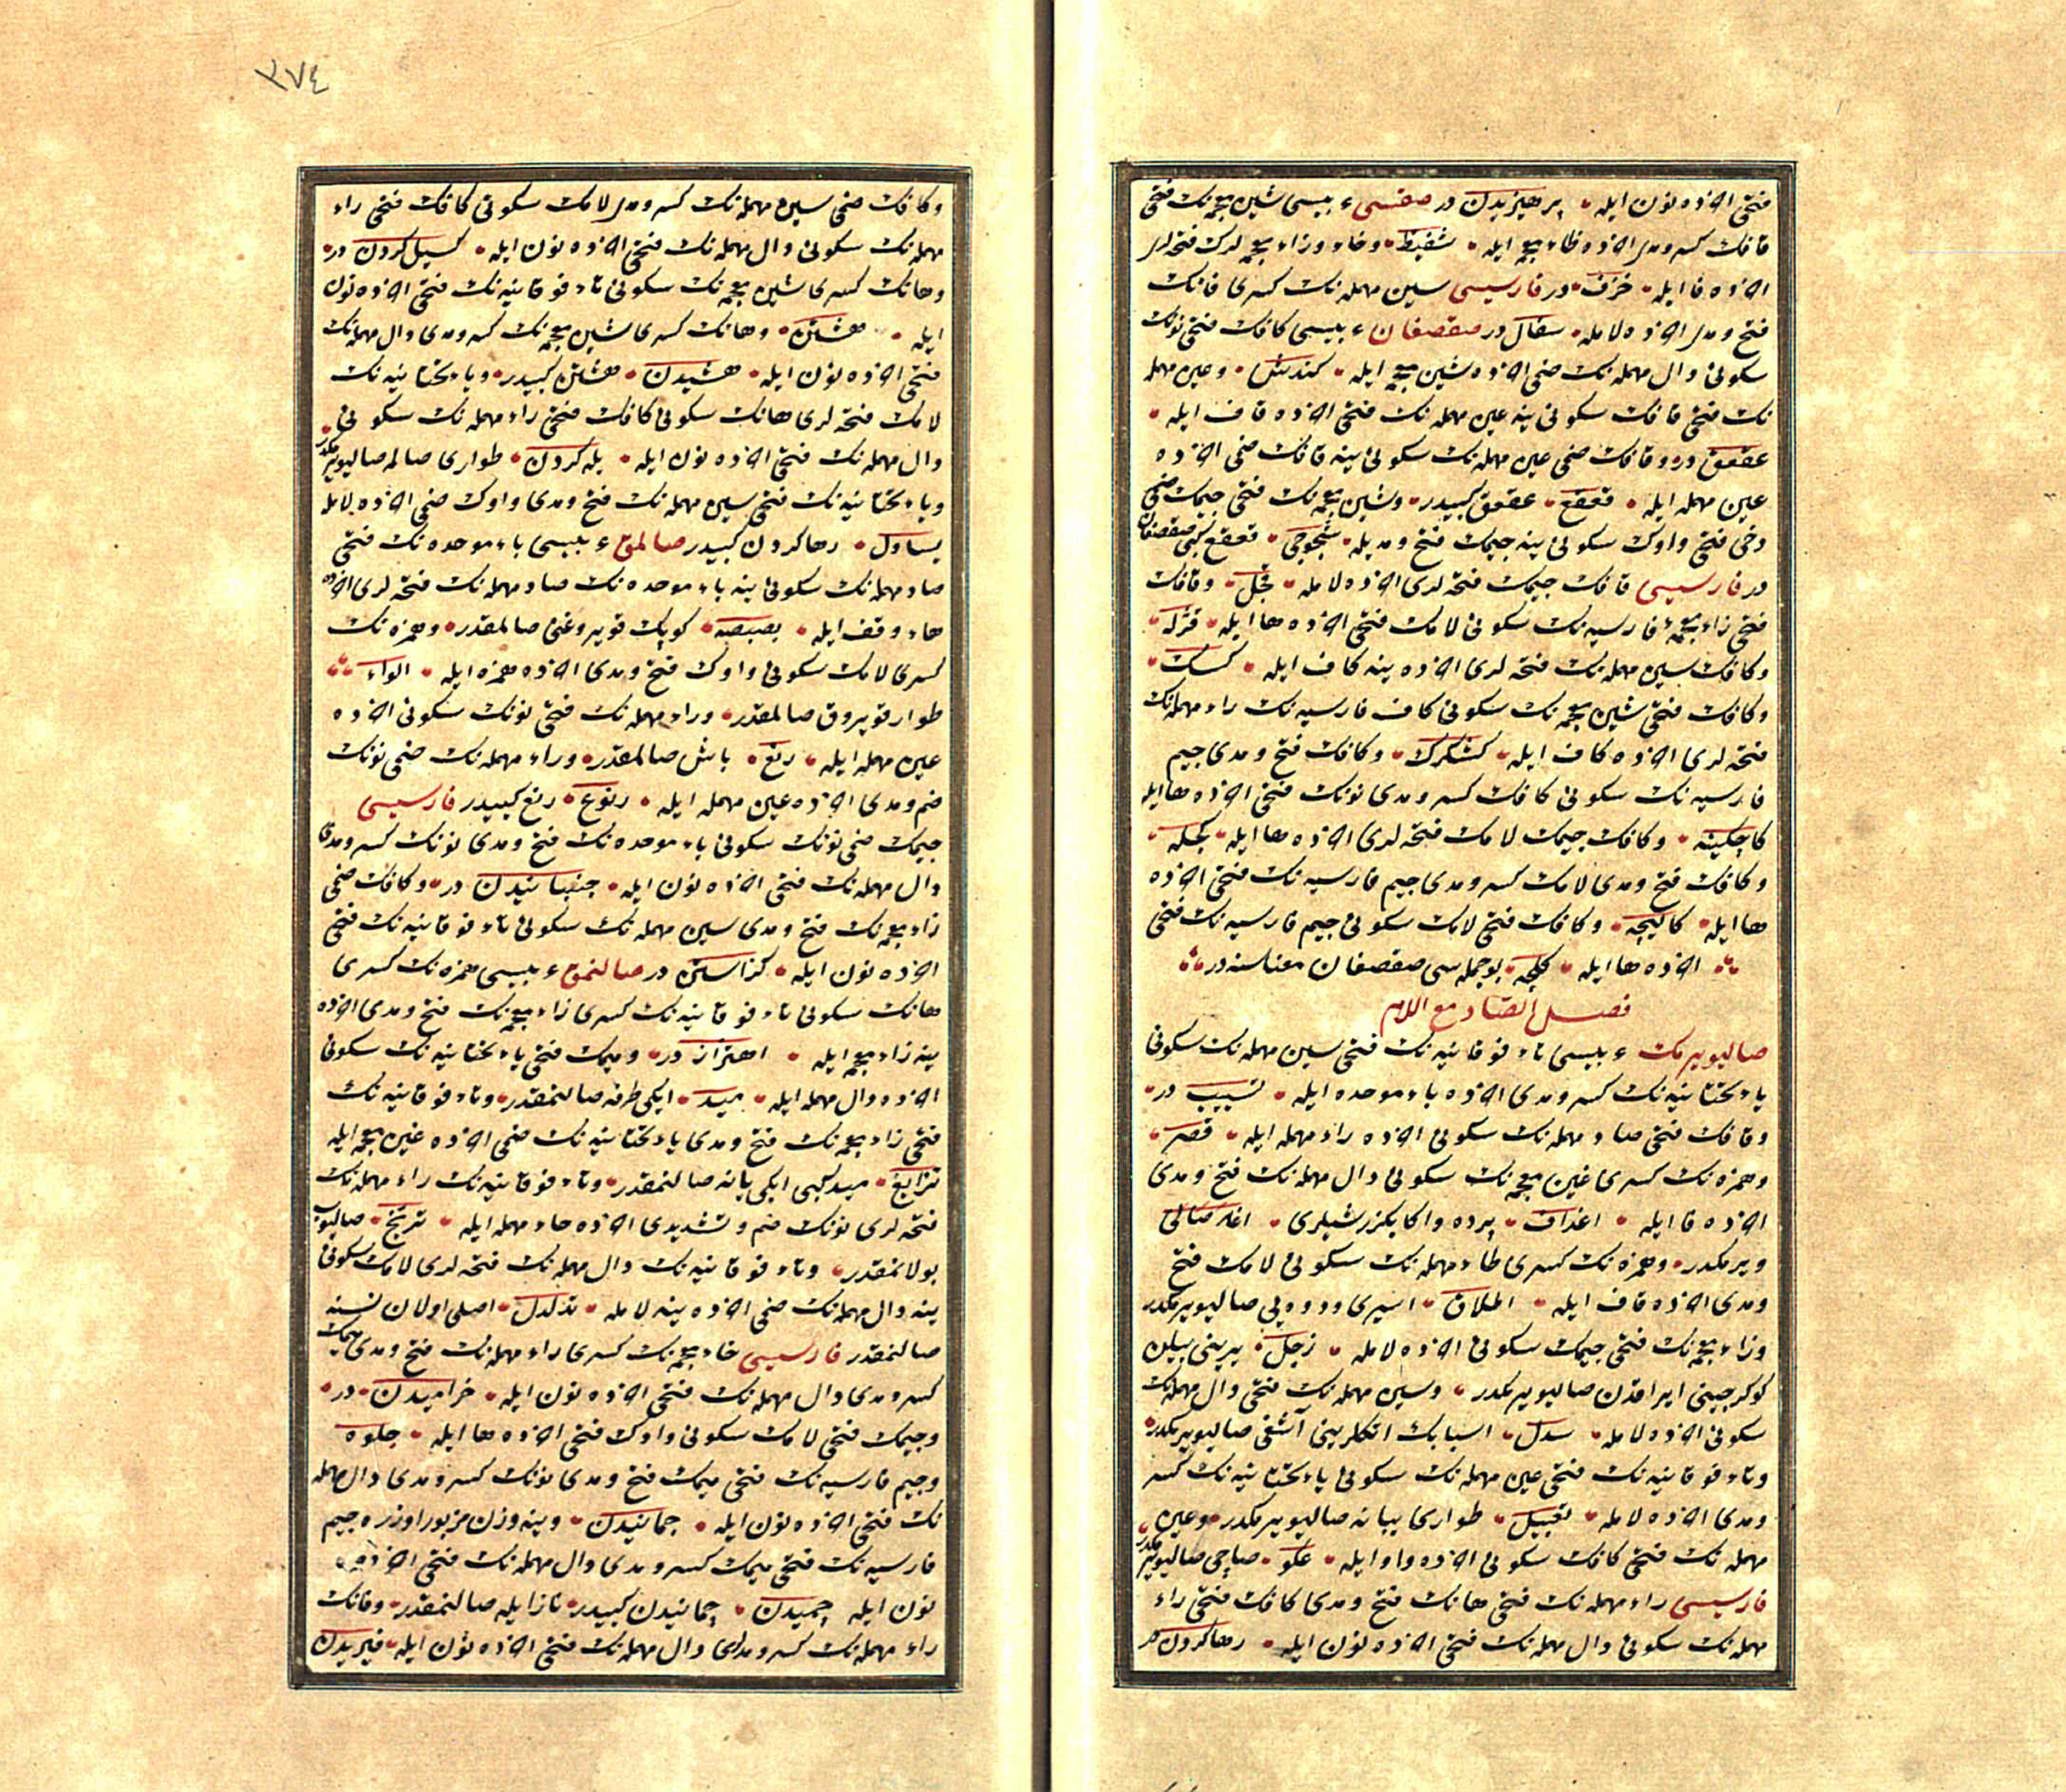 فتحى اخرده نون ايله پرهيزيدن در صقسى ء بيسى شين معجمه نك فتحى
قافك كسر و مدى اخرده ظاء معجمه ايله شقيظ وخاء وزاء معجمه لرك فتحه لرى
اخرده فا ايله خزف در فارسيسى سين مهمله نك كسرى فانك
فتح و مدى اخرده لامله سفال در صقصغان ء بيسى كافك فتحى نونك
سكونى دال مهمله نك ضمى اخرده شين معجمه ايله كندش وعين مهمله
نك فتحى قافك سكونى ينه عين مهمله نك فتحى اخرده قاف ايله
عقعق در وقافك ضمى عين مهمله نك سكونى ينه قافك ضمى اخرده
عين مهمله ايله قعقع عقعق كبيدر وشين معجمه نك فتحى جيمك ضمى
دخى فتحى واوك سكونى ينه جيمك فتح ومديله شجوجى قعقع كبى صقصغان
در فارسيسى قافك جيمك فتحه لرى اخرده لامله قجل وقافك
فتحى زاء معجمهٔ فارسيه نك سكونى لامك فتحى اخرده ها ايله قژله
وكافك سين مهمله نك فتحه لرى اخرده ينه كاف ايله كسك
وكافك فتحى شين معجمه نك سكونى كاف فارسيه نك راء مهمله نك
فتحه لرى اخرده كاف ايله كشكرك وكافك فتح و مدى جيم
فارسيه نك سكونى كافك كسر و مدى نونك فتحى اخرده ها ايله
كاچكينه وكافك جيمك لامك فتحه لرى اخرده ها ايله كجله
وكافك فتح ومدى لامك كسر ومدى جيم فارسيه نك فتحى اخرده
ها ايله كاليچه وكافك فتحى لامك سكونى جيم فارسيه نك فتحى
اخرده ها ايله كلچه بو جمله سى صقصغان معناسنه در
فصل الصاد مع اللام
صاليويرمك ء بيسى تاء فوقانيه نك فتحى سين مهمله نك سكونى
ياء تحتانيه نك كسر ومدى اخرده باء موحده ايله تسييب در
وقافك فتحى صاد مهمله نك سكونى اخرده راء مهمله ايله قصر
وهمزه نك كسرى غين معجمه نك سكونى دال مهمله نك فتح ومدى
اخرده فا ايله اغداف پرده واكا بكزر شيلرى اغلر صالى
ويرمكدر وهمزه نك كسرى طاء مهمله نك سكونى لامك فتح
ومدى اخرده قاف ايله اطلاق اسيرى ودوه يى صاليويرمكدر
وزاء معجمه نك فتحى جيمك سكونى اخرده لامله زجل يرينى بيلن
كوكرجينى ايراقدن صاليويرمكدر وسين مهمله نك فتحى دال مهمله نك
سكونى اخرده لامله سدل اسبابك اتكلرينى آشغى صاليويرمكدر
وتاء فوقانيه نك فتحى عين مهمله نك سكونى ياء تحتانيه نك كسر
ومدى اخرده لامله تعييل طوارى يبانه صاليويرمكدر وعين
مهمله نك فتحى كافك سكونى اخرده واو ايله عكو صاچى صاليويرمكدر
فارسيسى راء مهمله نك فتحى هانك فتح ومدى كافك فتحى راء
مهمله نك سكونى دال مهمله نك فتحى اخرده نون ايله رها كردن در
٣٧٤
وكافك ضمى سين مهمله نك كسر ومدى لامك سكونى كافك فتحى راء
مهمله نك سكونى دال مهمله نك فتحى اخرده نون ايله كسيل كردن در
وهانك كسرى شين معجمه نك سكونى تاء فوقانيه نك فتحى اخرده نون
ايله هشتن وهانك كسرى شين معجمه نك كسر ومدى دال مهمله نك
فتحى اخرده نون ايله هشيدن هشتن كبيدر وياء تحتانيه نك
لامك فتحه لرى هانك سكونى كافك فتحى راء مهمله نك سكونى
دال مهمله نك فتحى اخرده نون ايله يله كردن طوارى صالمه صاليويرمكدر
وياء تحتانيه نك فتحى سين مهمله نك فتح ومدى واوك ضمى اخرده لامله
يساول رها كردن كبيدر صالمق ء بيسى باء موحده نك فتحى
صاد مهمله نك سكونى ينه باء موحده نك صاد مهمله نك فتحه لرى اخرده
هاء وقف ايله بصبصه كوپك قويروغنى صالمقدر وهمزه نك
كسرى لامك سكونى واوك فتح ومدى اخرده همزه ايله الواء
طوار قويروق صالمقدر وراء مهمله نك فتحى نونك سكونى اخرده
عين مهمله ايله رنع باش صالمقدر وراء مهمله نك ضمى نونك
ضم ومدى اخرده عين مهمله ايله رنوع رنع كبيدر فارسيسى
جيمك ضمى نونك سكونى باء موحده نك فتح ومدى نونك كسر ومدى
دال مهمله نك فتحى اخرده نون ايله جنبانيدن در وكافك ضمى
زاء معجمه نك فتح ومدى سين مهمله نك سكونى تاء فوقانيه نك فتحى
اخرده نون ايله كزاستن در صالنمق ء بيسى همزه نك كسرى
هانك سكونى تاء فوقانيه نك كسرى زاء معجمه نك فتح ومدى اخرده
ينه زاء معجمه ايله اهتزاز در وميمك فتحى ياء تحتانيه نك سكونى
اخرده دال مهمله ايله ميد ايكى طرفه صالنمقدر وتاء فوقانيه نك
فتحى زاء معجمه نك فتح ومدى ياء تحتانيه نك ضمى اخرده غين معجمه ايله
تزايغ ميد كبى ايكى يانه صالنمقدر وتاء فوقانيه نك راء مهمله نك
فتحه لرى نونك ضم وتشديدى اخرده حاء مهمله ايله ترنح صالنوب
بولانمقدر وتاء فوقانيه نك دال مهمله نك فتحه لرى لامك سكونى
ينه دال مهمله نك ضمى اخرده ينه لامله تدلدل اصلى اولان نسنه
صالنمقدر فارسيسى خاء معجمه نك كسرى راء مهمله نك فتح ومدى ميمك
كسر ومدى دال مهمله نك فتحى اخرده نون ايله خراميدن در
وجيمك فتحى لامك سكونى واوك فتحى اخرده ها ايله جلوه
وجيم فارسيه نك فتحى ميمك فتح ومدى نونك كسر ومدى دال مهمله
نك فتحى اخرده نون ايله چمانيدن وينه وزن مزبور اوزره جيم
فارسيه نك فتحى ميمك كسر ومدى دال مهمله نك فتحى اخرده
نون ايله چميدن چمانيدن كبيدر ناز ايله صالنمقدر وفانك
راء مهمله نك كسر ومدى دال مهمله نك فتحى اخرده نون ايله فيريدن